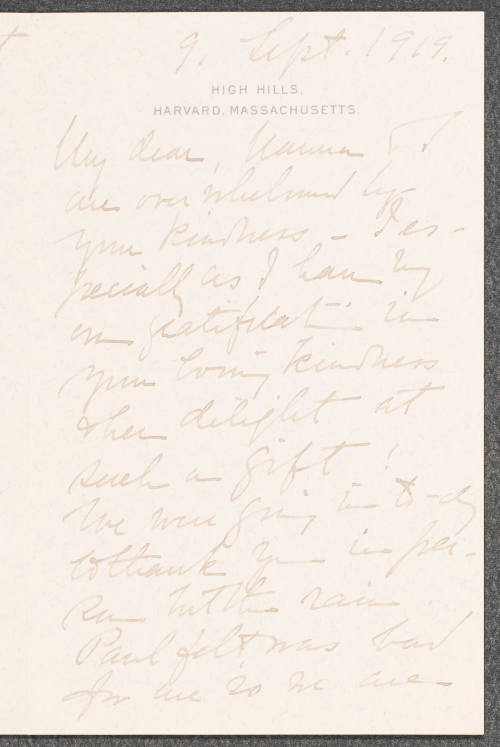 9. Sept. 1919.
HIGH HILLS,
HARVARD, MASSACHUSETTS.
My dear, Hanna & I
are overwhelmed by
your kindness - I es-
pecially as I have my
own gratification in
your loving kindness
& her delight at
such a gift!
We were going in to-day
to thank you in per-
son but the rain.
Paul felt was bad
for me so we are